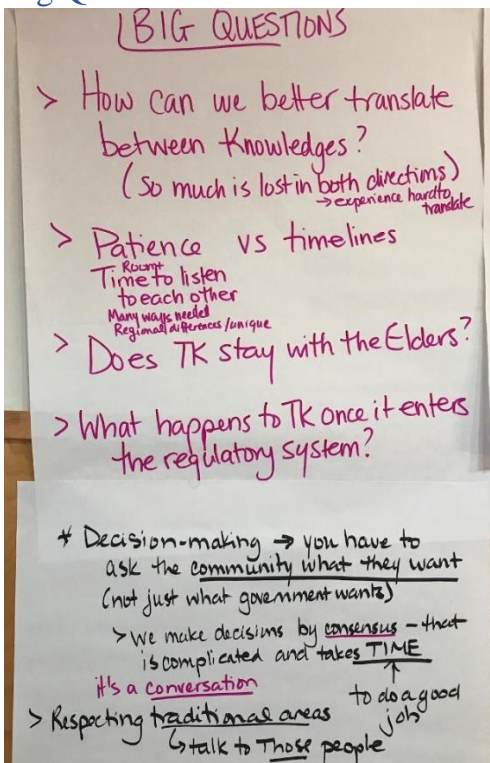 BIG QUESTIONS
> How can we better translate
between Knowledges?
(So much is lost in both directions)
→ experience hard to
translate
> Patience vs timelines
Room
Time to listen
to each other
Many ways needed
Regional differences/unique
> Does TK stay with the Elders?
> What happens to TK once it enters
the regulatory system?
* Decision-making → you have to
ask the community what they want
(not just what government wants)
> we make decisions by consensus – that
is complicated and takes TIME
it's a conversation
to do a good
job
> Respecting traditional areas
↳ talk to Those people